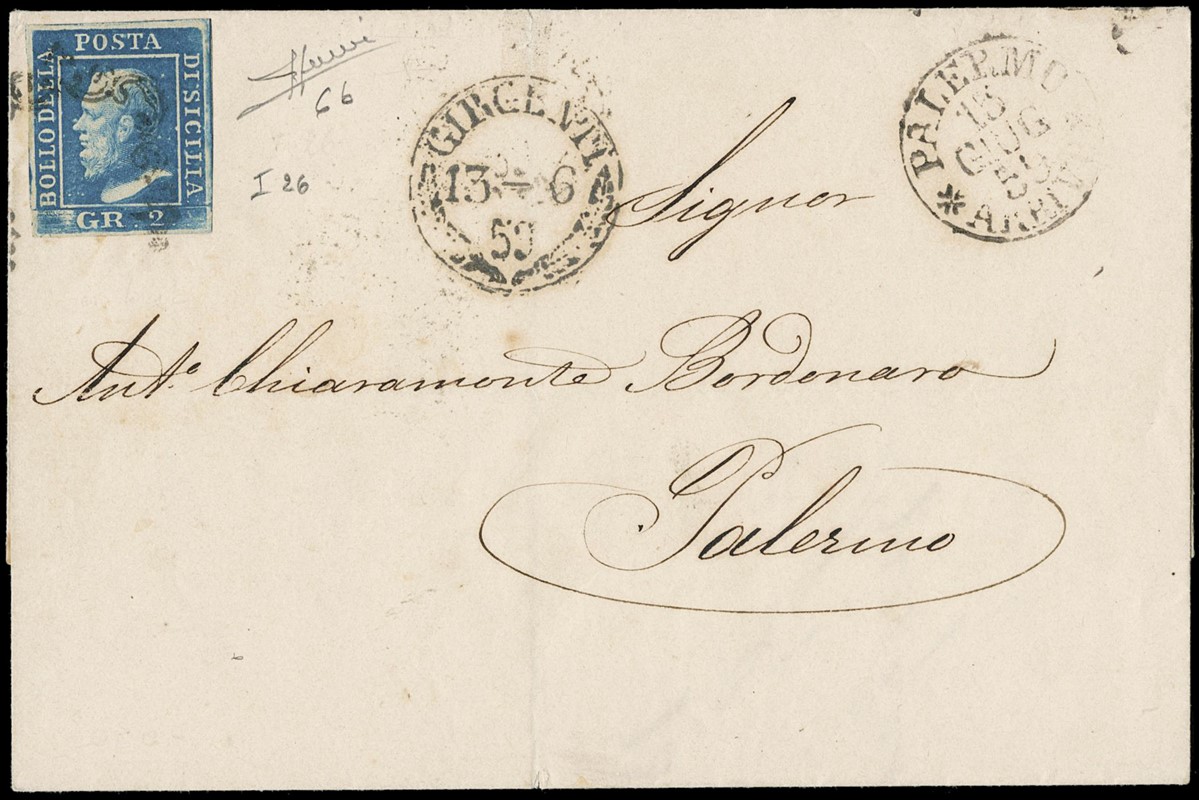 POSTA
BOLLO DELLA
DI SICILIA
GR. 2
66
I 26
GIRGENTI
13 - 6
59
PALERMO
13
GIUG
Signor
Ant.º Chiaramonte Bordonaro
Palermo